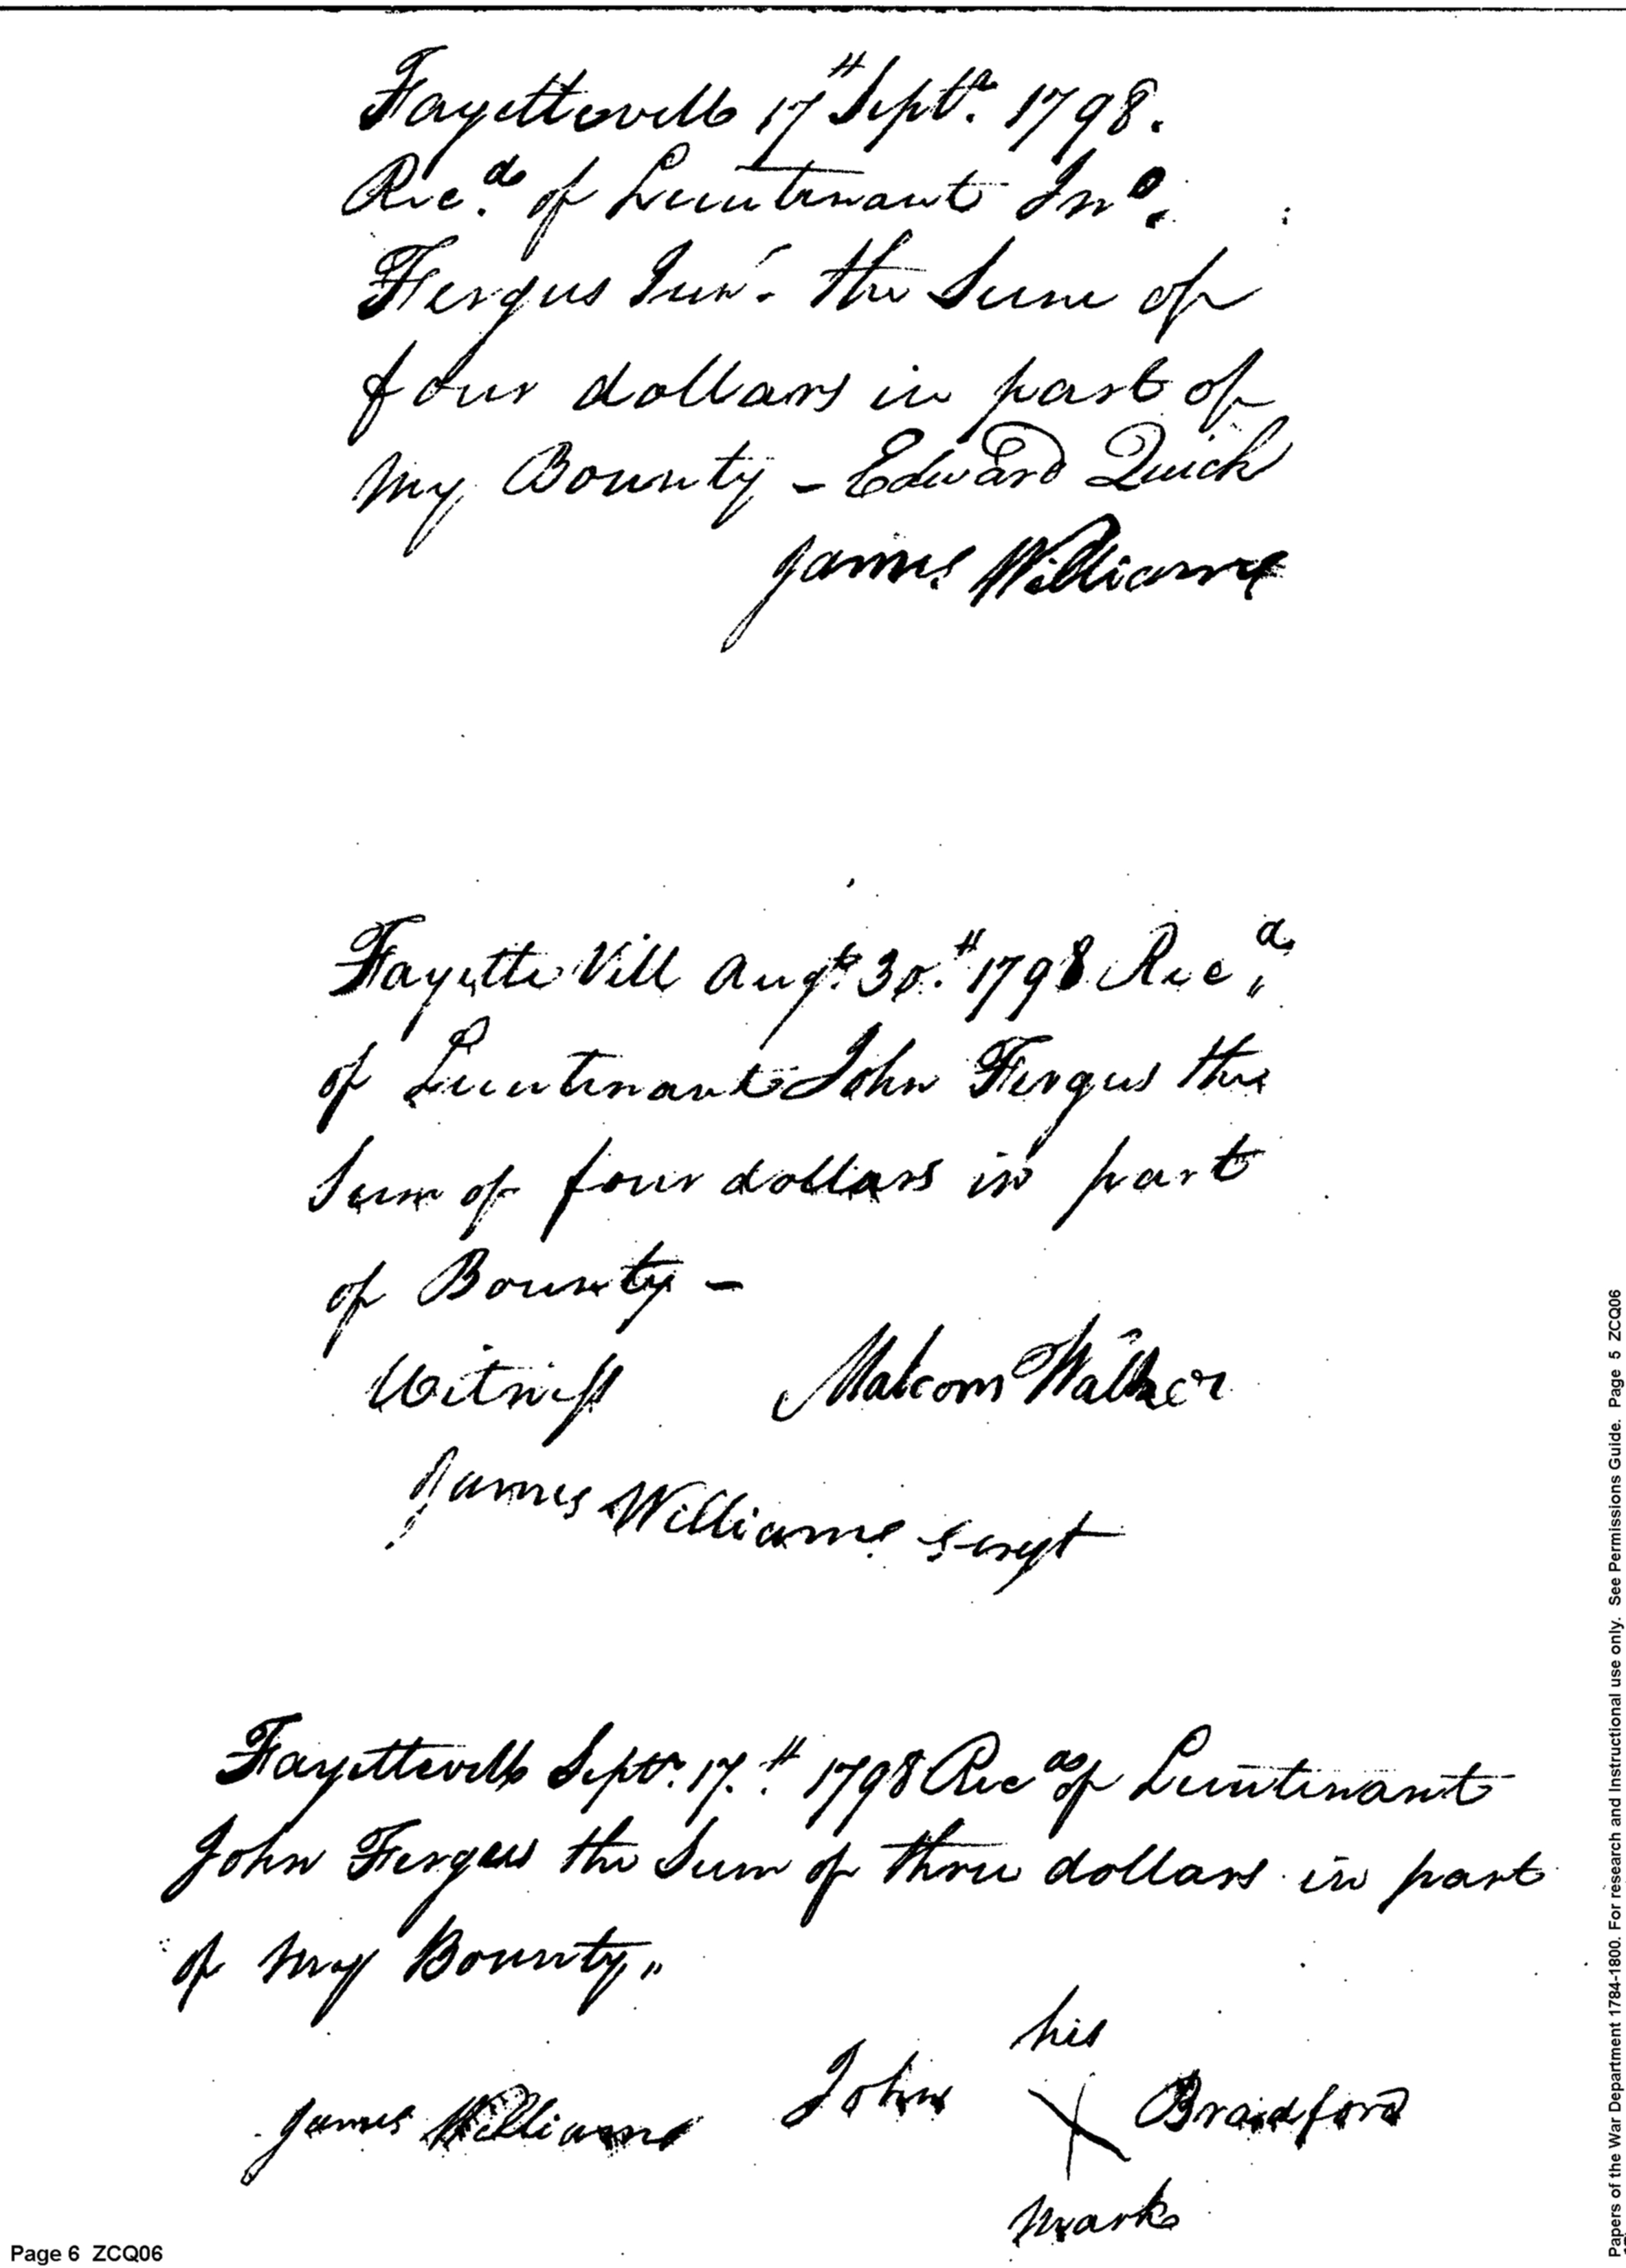 Fayettevill 17th Septr. 1798.
Recd. of Lieutenant Jno.
Fergus Junr. the Sum of
four dollars in part of
my Bounty - Edward Quick
James Williams
Fayette Vill Augt. 30.th 1798 Recd.
of Lieutenant John Fergus the
Sum of four dollars in part
of Bounty -
Witness Malcom Walker
James Williams sergt
Fayettevill Septr. 17.th 1798 Recd of Lieutenant
John Fergus the Sum of three dollars in part
of my Bounty,,
his
James Williams John X Bradford
mark
Page 6 ZCQ06
Papers of the War Department 1784-1800. For research and Instructional use only. See Permissions Guide. Page 5 ZCQ06